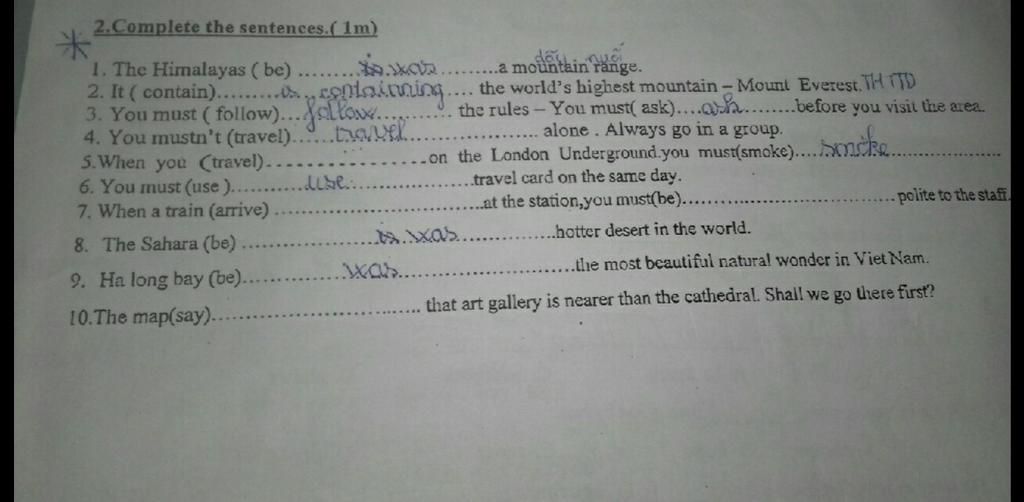 2.Complete the sentences.( 1m)
dãy núi
1. The Himalayas ( be) ........is was..........a mountain range.
2. It ( contain).........is containing.... the world's highest mountain – Mount Everest. TH TTD
3. You must ( follow)...follow............ the rules – You must( ask)....ask........before you visit the area.
4. You mustn't (travel)......travel................... alone . Always go in a group.
5.When you (travel)- - - - - - - - - - - - - - -on the London Underground.you must(smoke)....smoke...................
6. You must (use )............use.....................travel card on the same day.
7. When a train (arrive) ....................................at the station,you must(be)..................................... polite to the staff.
8. The Sahara (be) .......................is was..................hotter desert in the world.
9. Ha long bay (be)..................was..............................the most beautiful natural wonder in Viet Nam.
10.The map(say)..................................... that art gallery is nearer than the cathedral. Shall we go there first?